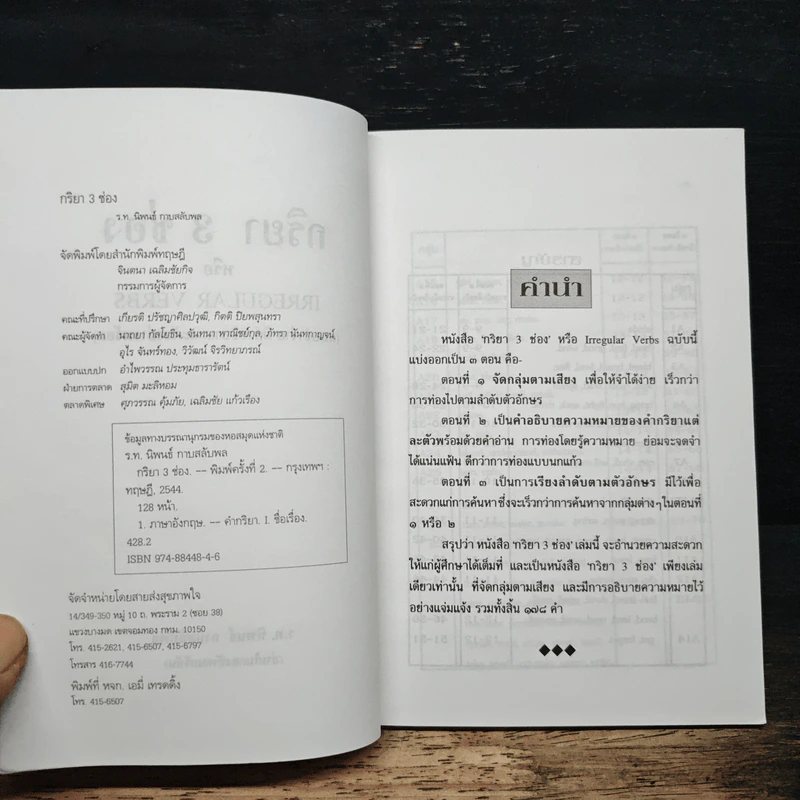 กริยา 3 ช่อง
ร.ท. นิพนธ์ กาบสลับพล
จัดพิมพ์โดยสำนักพิมพ์ทฤษฎี
จินตนา เฉลิมชัยกิจ
กรรมการผู้จัดการ
คณะที่ปรึกษา เกียรติ ปรัชญาศิลปวุฒิ, กิตติ ปิยพสุนทรา
คณะผู้จัดทำ นาถยา กัสโยธิน, จันทนา พาณิชย์กุล, ภัทรา นันทกาญจน์,
อุไร จันทร์ทอง, วิวัฒน์ จิรวิทยาภรณ์
ออกแบบปก อำไพวรรณ ประทุมธารารัตน์
ฝ่ายการตลาด สุมิต มะลิหอม
ตลาดพิเศษ ศุภวรรณ คุ้มภัย, เฉลิมชัย แก้วเรือง
ข้อมูลทางบรรณานุกรมของหอสมุดแห่งชาติ
ร.ท. นิพนธ์ กาบสลับพล
กริยา 3 ช่อง. -- พิมพ์ครั้งที่ 2. -- กรุงเทพฯ :
ทฤษฎี, 2544.
128 หน้า.
1. ภาษาอังกฤษ. -- คำกริยา. I. ชื่อเรื่อง.
428.2
ISBN 974-88448-4-6
จัดจำหน่ายโดยสายส่งสุขภาพใจ
14/349-350 หมู่ 10 ถ. พระราม 2 (ซอย 38)
แขวงบางมด เขตจอมทอง กทม. 10150
โทร. 415-2621, 415-6507, 415-6797
โทรสาร 416-7744
พิมพ์ที่ หจก. เอมี่ เทรดดิ้ง
โทร. 415-6507
คำนำ
หนังสือ 'กริยา 3 ช่อง' หรือ Irregular Verbs ฉบับนี้
แบ่งออกเป็น ๓ ตอน คือ-
ตอนที่ ๑ จัดกลุ่มตามเสียง เพื่อให้จำได้ง่าย เร็วกว่า
การท่องไปตามลำดับตัวอักษร
ตอนที่ ๒ เป็นคำอธิบายความหมายของคำกริยาแต่
ละตัวพร้อมด้วยคำอ่าน การท่องโดยรู้ความหมาย ย่อมจะจดจำ
ได้แน่นแฟ้น ดีกว่าการท่องแบบนกแก้ว
ตอนที่ ๓ เป็นการเรียงลำดับตามตัวอักษร มีไว้เพื่อ
สะดวกแก่การค้นหา ซึ่งจะเร็วกว่าการค้นหาจากกลุ่มต่างๆในตอนที่
๑ หรือ ๒
สรุปว่า หนังสือ 'กริยา 3 ช่อง' เล่มนี้ จะอำนวยความสะดวก
ให้แก่ผู้ศึกษาได้เต็มที่ และเป็นหนังสือ 'กริยา 3 ช่อง' เพียงเล่ม
เดียวเท่านั้น ที่จัดกลุ่มตามเสียง และมีการอธิบายความหมายไว้
อย่างแจ่มแจ้ง รวมทั้งสิ้น ๑๗๘ คำ